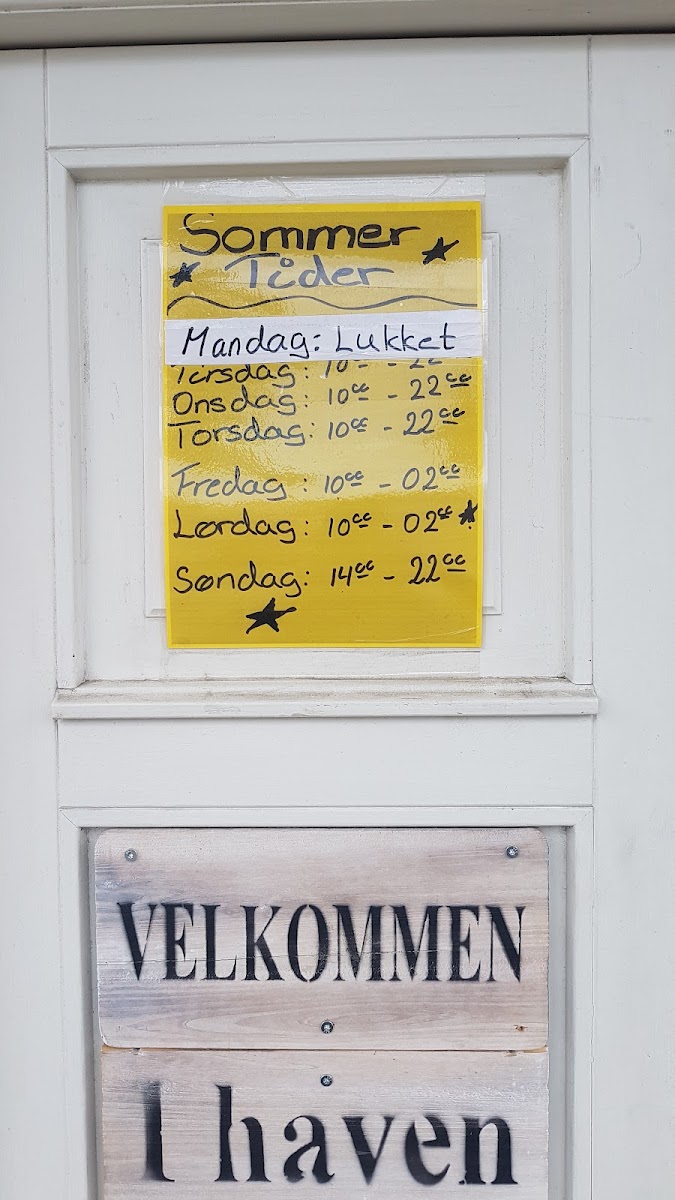 Sommer
Tider
Mandag: Lukket
Tirsdag: 10⁰⁰ - 22⁰⁰
Onsdag: 10⁰⁰ - 22⁰⁰
Torsdag: 10⁰⁰ - 22⁰⁰
Fredag: 10⁰⁰ - 02⁰⁰
Lørdag: 10⁰⁰ - 02⁰⁰
Søndag: 14⁰⁰ - 22⁰⁰
VELKOMMEN
I haven